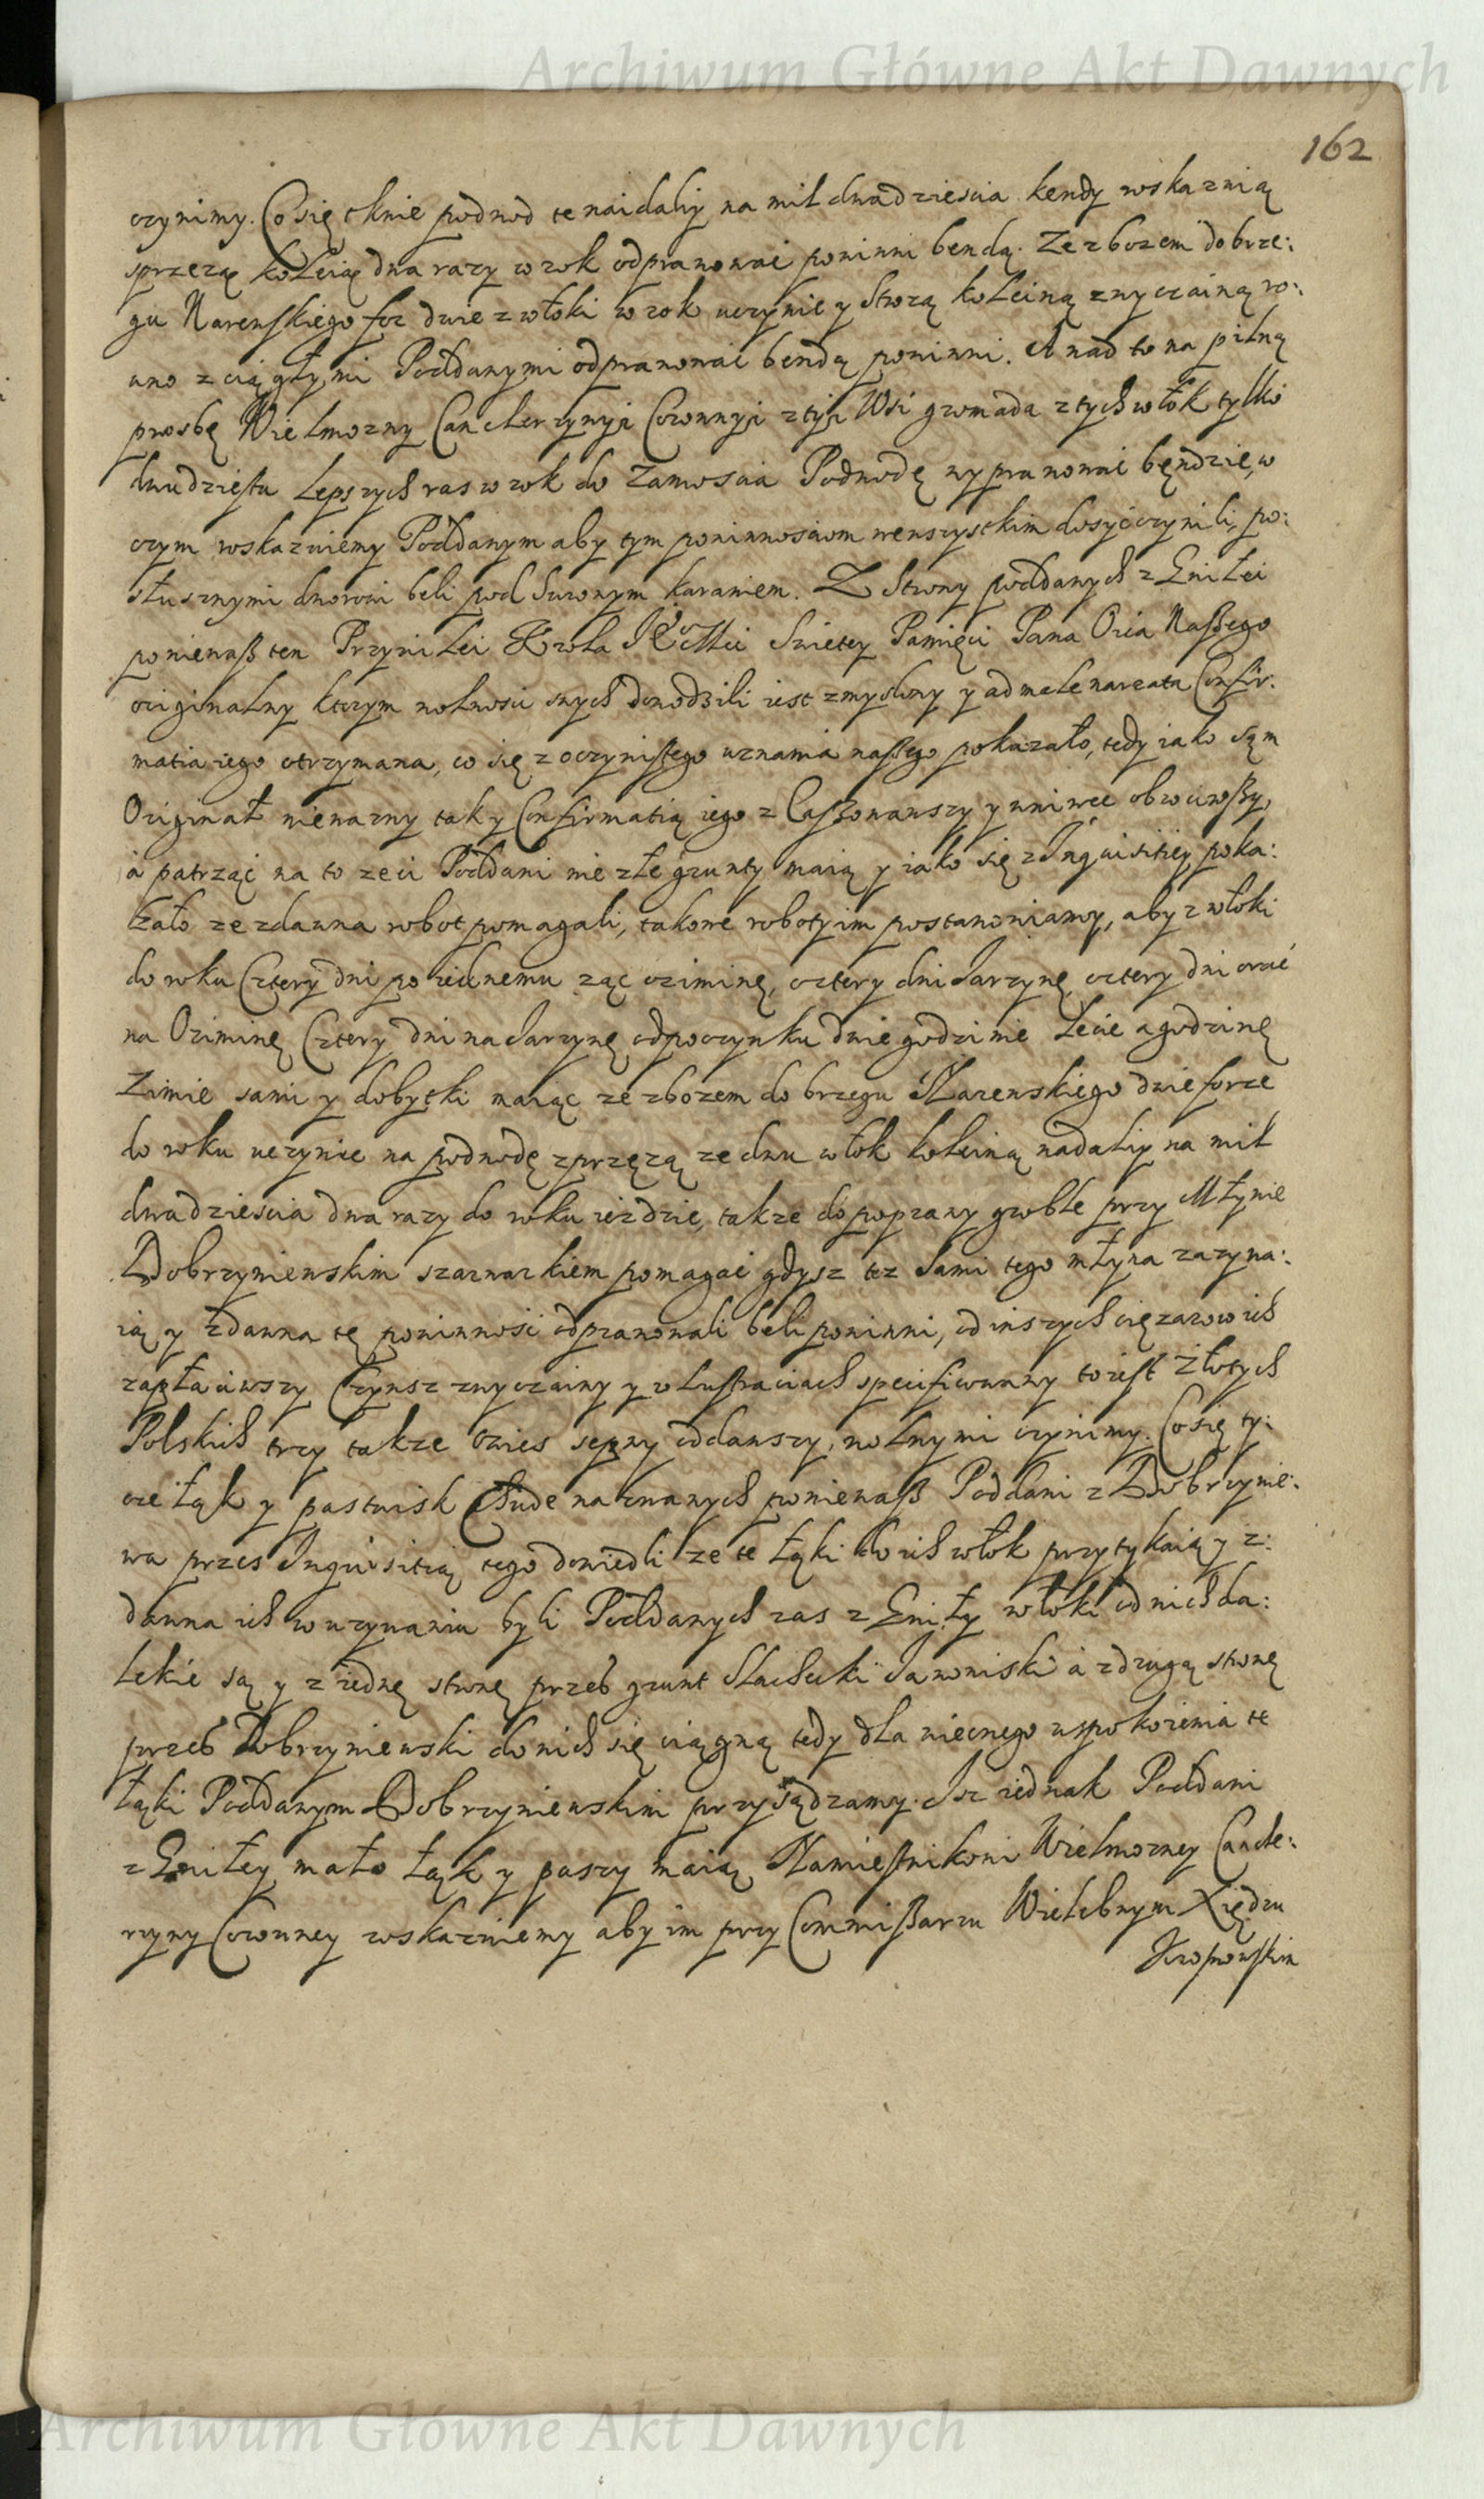 Archiwum Główne Akt Dawnych
162
czynimy. Co się tknie podwod te naidaliy na mil dwadziescia kendy wskaznią
sprzezą koleią dwa razy w rok odprawowac powinni bendą. Ze zbozem do brze:
gu Narewskiego for dwie z włoki w rok uczynic y Strozą koleiną zwyczainą ro:
wno z ciągłymi Poddanymi odprawowac bendą powinni. A nad to na pilną
prosbę Wielmozny Canclerzynyi Coronnyi z tyi Wsi gromada z tych włok tylko
dwudziestu Lepszych ras w rok do Zamoscia Podwodę wyprawowac będzie, w
czym wskazuiemy Poddanym aby tym powinnosciom wenszystkim dosyć czynili, po:
słusznymi dworowi beli pod Surowym karaniem. Z Strony poddanych z Gniłei
poniewasz ten Przywilei Krola JeoMci Swietey Pamięci Pana Oica Naszego
originalny ktorym wolnosci swych dowodzili iest zmyslony y ad male narrata Confir:
matia iego otrzymana, co się z oczywistego uznania naszego pokazało, tedy iako sąm
Originał niewazny tak y Confirmatią iego z Caszowawszy y wniwęc obrociwszy,
à patrząc na to ze ci Poddani nie złe grunty maią y iako się z Inquisitiey poka:
zało ze zdawna robot pomagali, takowe roboty im postanowiamy, aby z włoki
do roku Cztery dni po iednemu ząc oziminę, cztery dni Jarzynę cztery dni orać
na Oziminę Cztery dni na Jarzynę odpoczynku dwie godzinie Lecie a godzinę
Zimie sami y dobytki maiąc ze zbozem do brzegu Narewskiego dwie forze
do roku uczynic na podwodę zprzęzą ze dwu włok koleiną nadaliy na mil
dwadziescia dwa razy do roku iezdzic, takze do poprawy groble przy Młynie
Dobrzyniewskim szarwarkiem pomagac gdysz tez Sami tego młyna zazywa:
ią y zdawna tę powinność odprawowali beli powinni, od inszych cięzarow ich
zapłaciwszy Czynsz zwyczainy y w lustraciach specificowany to iest Złotych
Polskich trzy takze Owies sepny oddawszy, wolnymi czynimy. Co się ty:
cze łąk y pastwisk Chude nazwanych poniewasz Poddani z Dobrzynie:
wa przes Inquisitią tego dowiedli ze te łąki do ich włok przytykaią y z:
dawna ich w uzywaniu byli Poddanych zas z Gniły włoki od nich da:
lekie są y z iednę stronę przes grunt Slachecki Janowiski à z drugą stronę
przes Dobrzyniewski do nich się ciągną tedy dla wiecznego uspokoienia te
łąki Poddanym Dobrzyniewskim przysądzamy. Isz iednak Poddani
z Gniłey mało łąk y paszy maią Namiesnikowi Wielmozney Cancle:
rzyny Coronney wskazuiemy aby im przy Commissarzu Wielebnym Xiędzu
Archiwum Główne Akt Dawnych